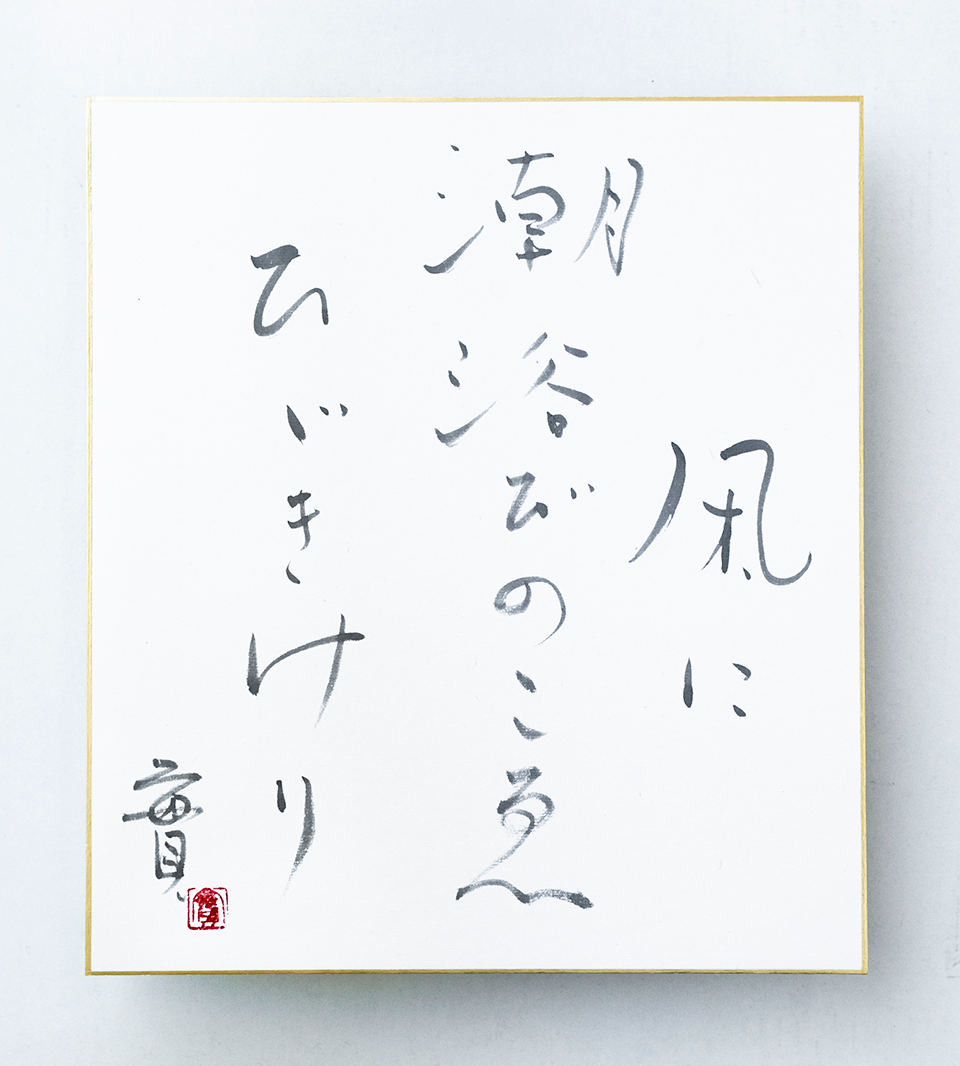 凩に
潮浴びのこゑ
ひびきけり
實